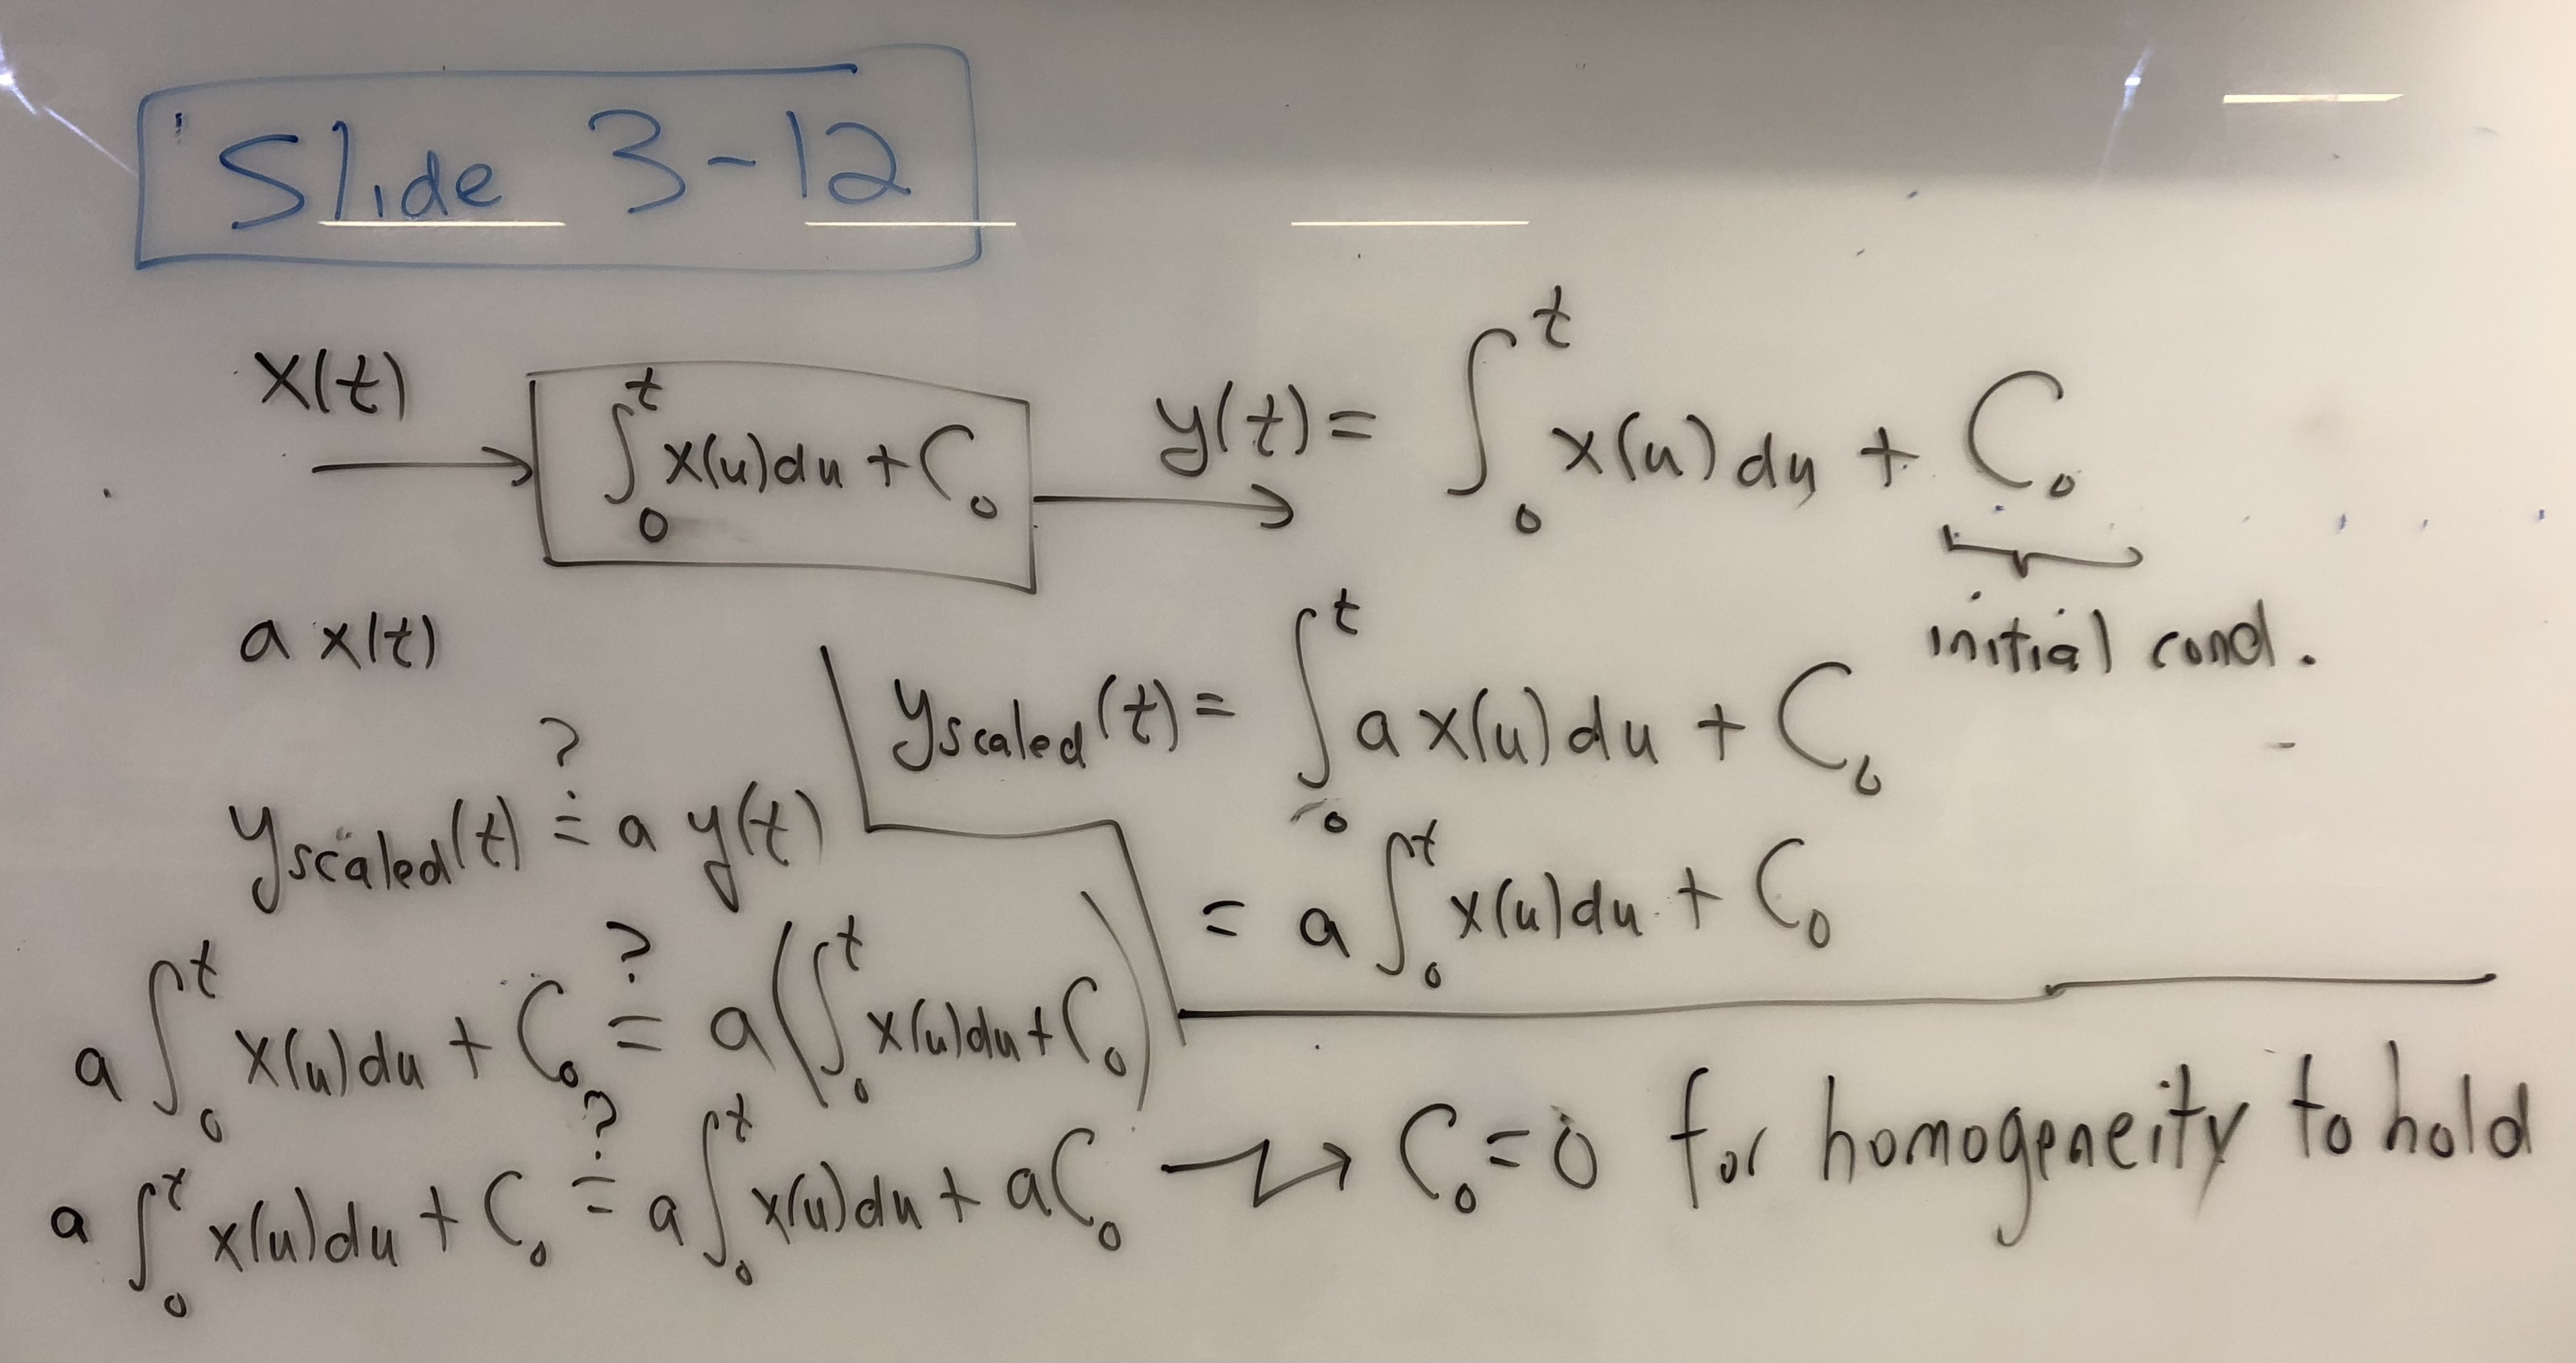 Slide 3-12
x(t)
∫₀ᵗ x(u)du + C₀
y(t) = ∫₀ᵗ x(u) du + C₀
initial cond.
a x(t)
y_scaled(t) = ∫₀ᵗ a x(u) du + C₀
= a ∫₀ᵗ x(u)du + C₀
y_scaled(t) ≟ a y(t)
a ∫₀ᵗ x(u)du + C₀ ≟ a(∫₀ᵗ x(u)du + C₀)
a ∫₀ᵗ x(u)du + C₀ ≟ a ∫₀ᵗ x(u)du + a C₀ → C₀ = 0 for homogeneity to hold